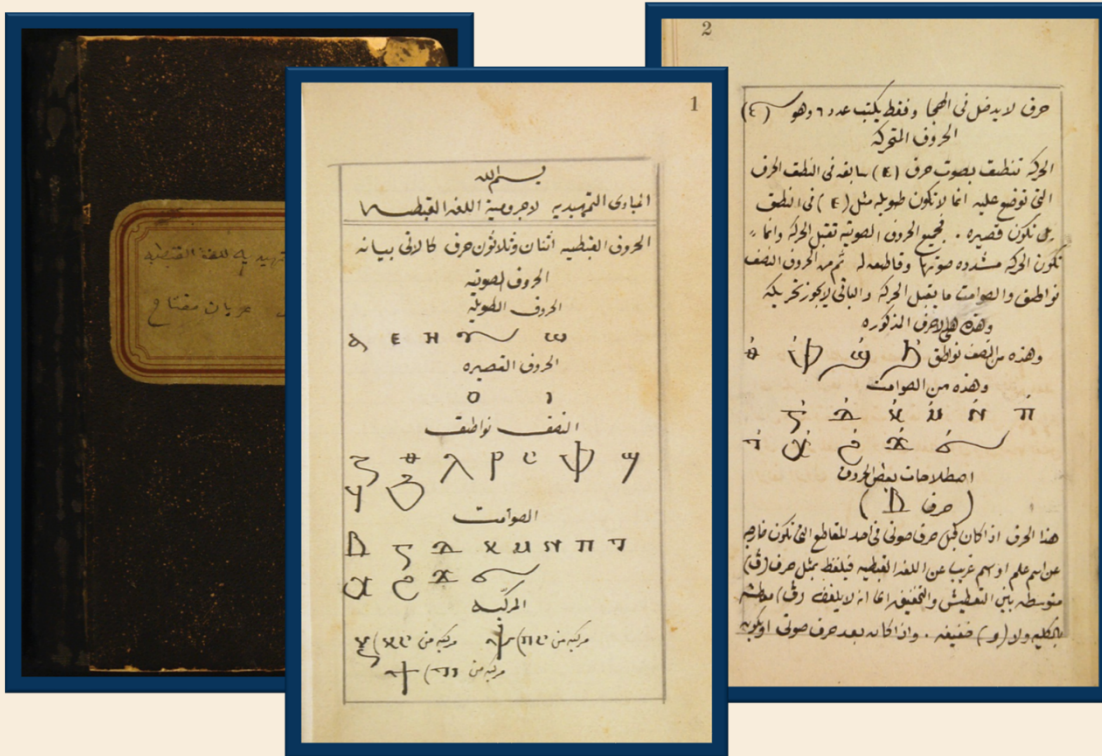 تمهيديه للغة القبطيه
عريان مفتاح
1
بسم الله
المبادى التمهيديه لاجروميه اللغه القبطيه
الحروف القبطيه اثنان وثلاثون حرف كالاتى بيانه
الحروف الصوتيه
الحروف الطويله
ⲁ ⲉ ⲏ ⲱ
الحروف القصيره
ⲟ ⲓ
النصف نواطق
ⲍ ⲑ ⲗ ⲣ ⲥ ⲫ ⲯ
الصوامت
ⲅ ⲇ ⲕ ⲙ ⲛ ⲡ ⲧ
المركبه
مركبه من ⲡⲥ) مركبه من ⲕⲥ)
مركبه من ⲧⲓ)
2
حرف لايدخل فى الهجا وفقط يكتب عدد ٦ وهو
الحروف المتحركه
الحركه تنطق بصوت حرف (ⲉ) سابقه فى النطق الحرف
التى توضع عليه انما لاتكون طويله مثل (ⲉ) فى النطق
بل تكون قصيره . فجميع الحروف الصوتيه تقبل الحركه وانما
تكون الحركه مشدده صوتها وقاطعه له ثم من الحروف النصف
نواطق والصوامت ما يقبل الحركه والباقى لايجوز تحريكه
وهذه هى الاحرف المذكوره
وهذه من النصف نواطق
وهذه من الصوامت
ⲅ ⲇ ⲕ ⲙ ⲛ ⲡ
اصطلاحات بعض الحروف
(حرف ⲃ)
هذا الحرف اذا كان قبل حرف صوتى فى احد المقاطع التى تكون خارجه
عن اسم علم او اسم غريب عن اللغه القبطيه فيلفظ بمثل حرف
متوسطه بين التعطيش والتخفيف انما انه لايلفظ
بالكليه ولا (و) خفيفه . واذا كان بعد حرف صوتى اويكون